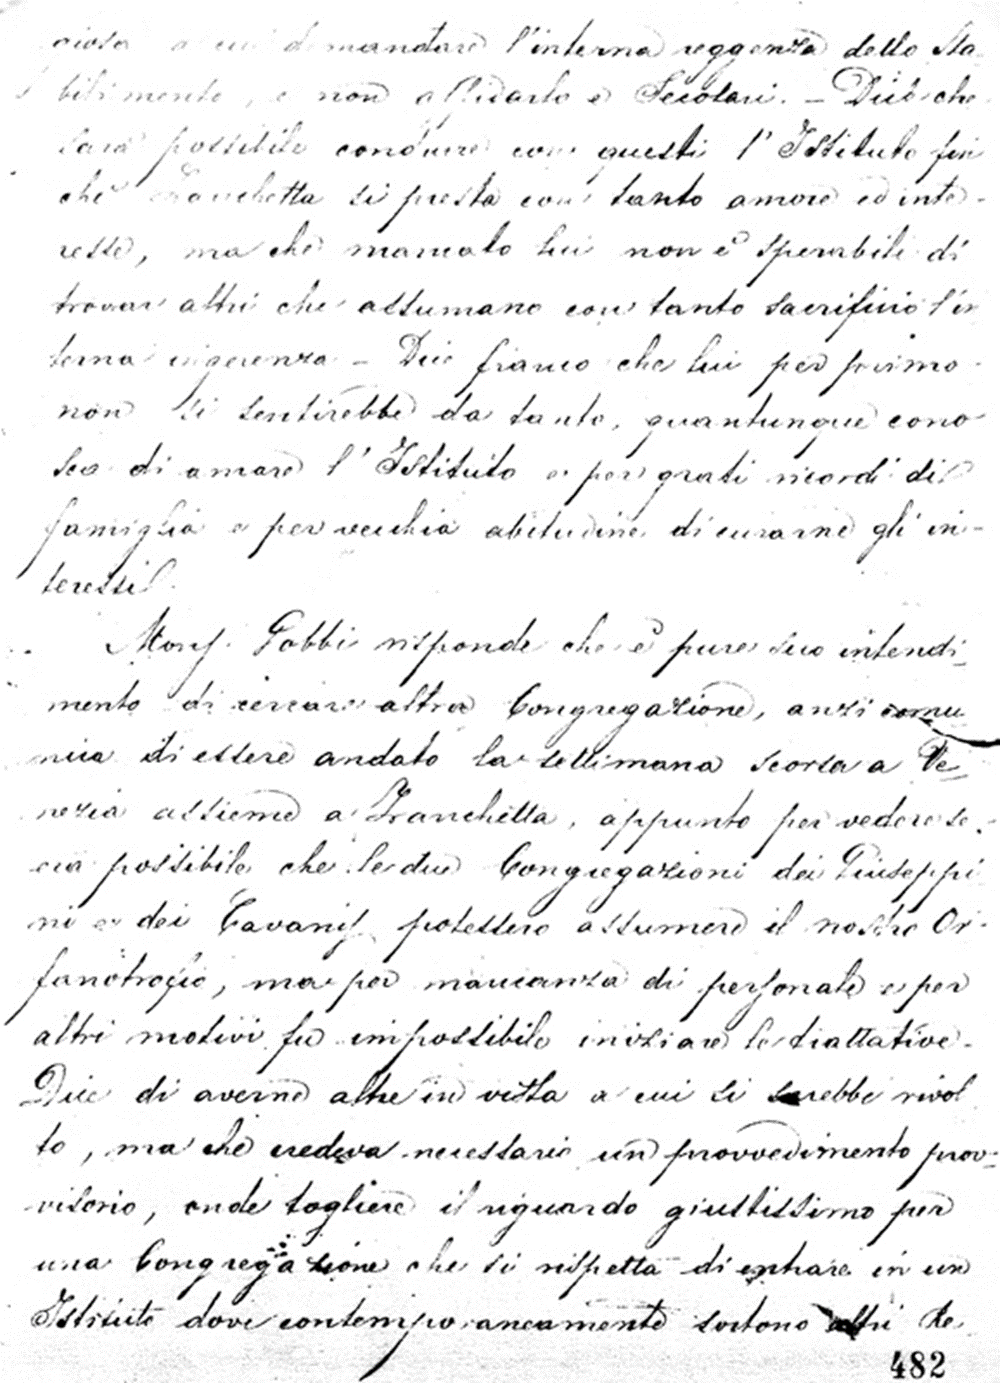 giosa a cui domandare l'interna reggenza dello Sta-
bilimento, e non affidarlo a Secolari. — Dice che
sarà possibile condurre con questi l'Istituto fin
chè Franchetta si presta con tanto amore ed inte-
resse, ma che mancato lui non è sperabile di
trovar altri che assumano con tanto sacrificio l'in
terna ingerenza — Dice franco che lui per primo
non si sentirebbe da tanto, quantunque cono
sca di amare l'Istituto e per grati ricordi di
famiglia e per vecchia abitudine di curarne gli in-
teressi.
Monsʳ. Gobbi risponde che è pure suo intendi-
mento di cercare altra Congregazione, anzi comu
nica di essere andato la settimana scorsa a Ve-
nezia assieme a Franchetta, appunto per vedere se
era possibile che le due Congregazioni dei Giuseppi
ni e dei Cavanis potessero assumere il nostro Or-
fanotrofio, ma per mancanza di personale e per
altri motivi fu impossibile iniziare le trattative.
Dice di averne altre in vista a cui si sarebbe rivol
to, ma che credeva necessario un provvedimento prov-
visorio, onde togliere il riguardo giustissimo per
una Congregazione che si rispetta di entrare in un
Istituto dove contemporaneamente sortono altri Re
482